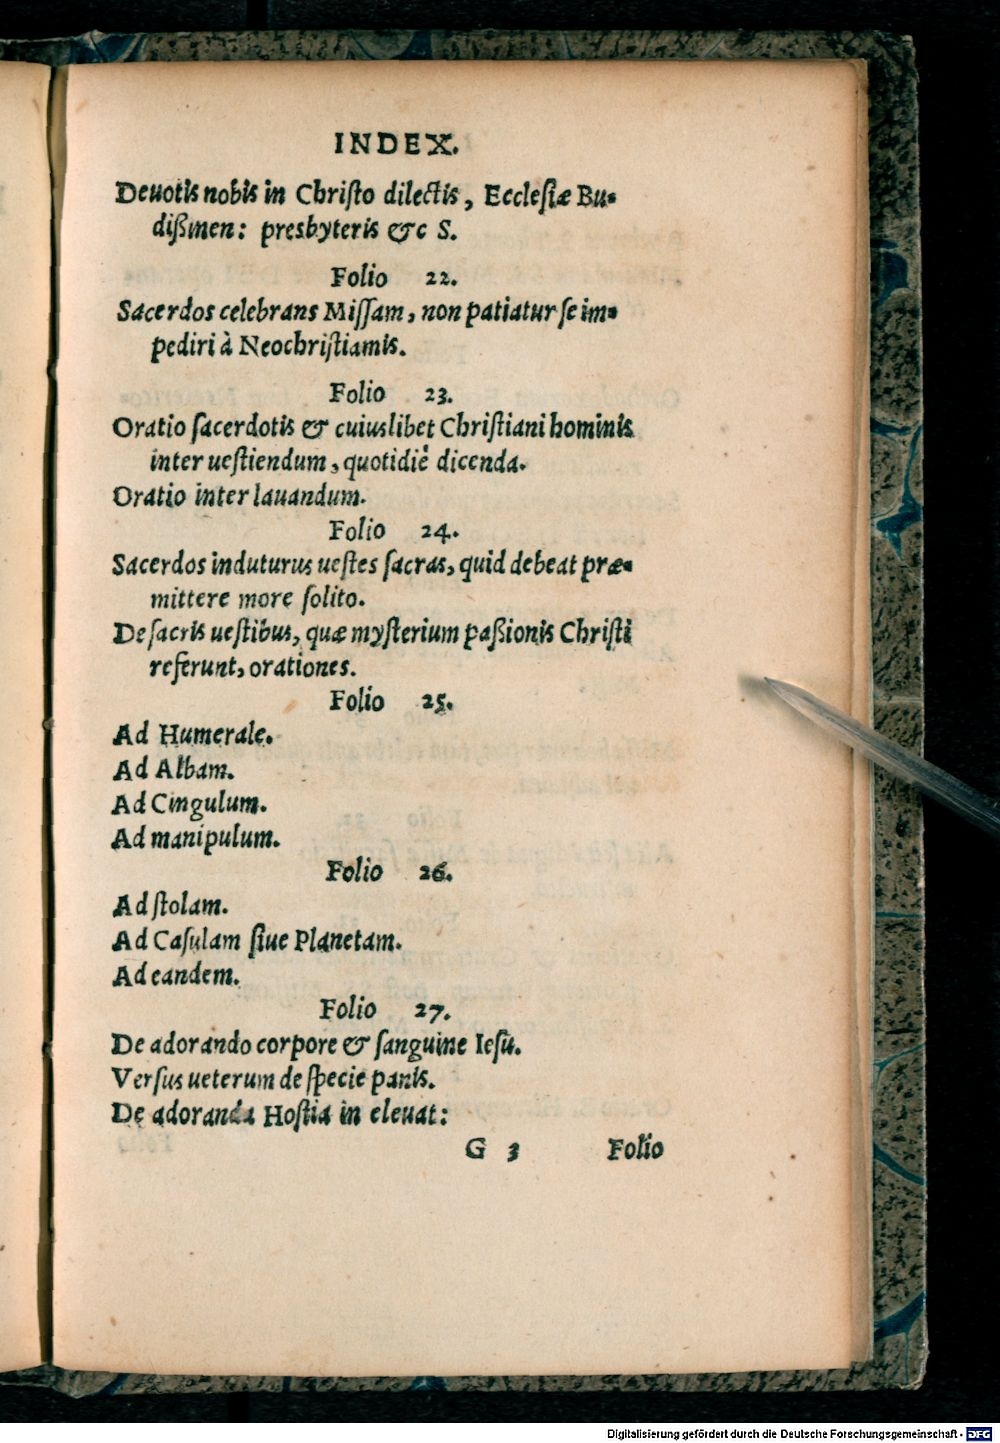 INDEX.
Deuotis nobis in Christo dilectis, Ecclesiæ Bu-
dißmen: presbyteris &c S.
Folio 22.
Sacerdos celebrans Missam, non patiatur se im-
pediri à Neochristiamis.
Folio 23.
Oratio sacerdotis & cuiuslibet Christiani hominis
inter uestiendum, quotidiè dicenda.
Oratio inter lauandum.
Folio 24.
Sacerdos induturus uestes sacras, quid debeat præ-
mittere more solito.
De sacris uestibus, quæ mysterium paßionis Christi
referunt, orationes.
Folio 25.
Ad Humerale.
Ad Albam.
Ad Cingulum.
Ad manipulum.
Folio 26.
Ad stolam.
Ad Casulam siue Planetam.
Ad eandem.
Folio 27.
De adorando corpore & sanguine Iesu.
Versus ueterum de specie panis.
De adoranda Hostia in eleuat:
G 3 Folio
Digitalisierung gefördert durch die Deutsche Forschungsgemeinschaft - DFG